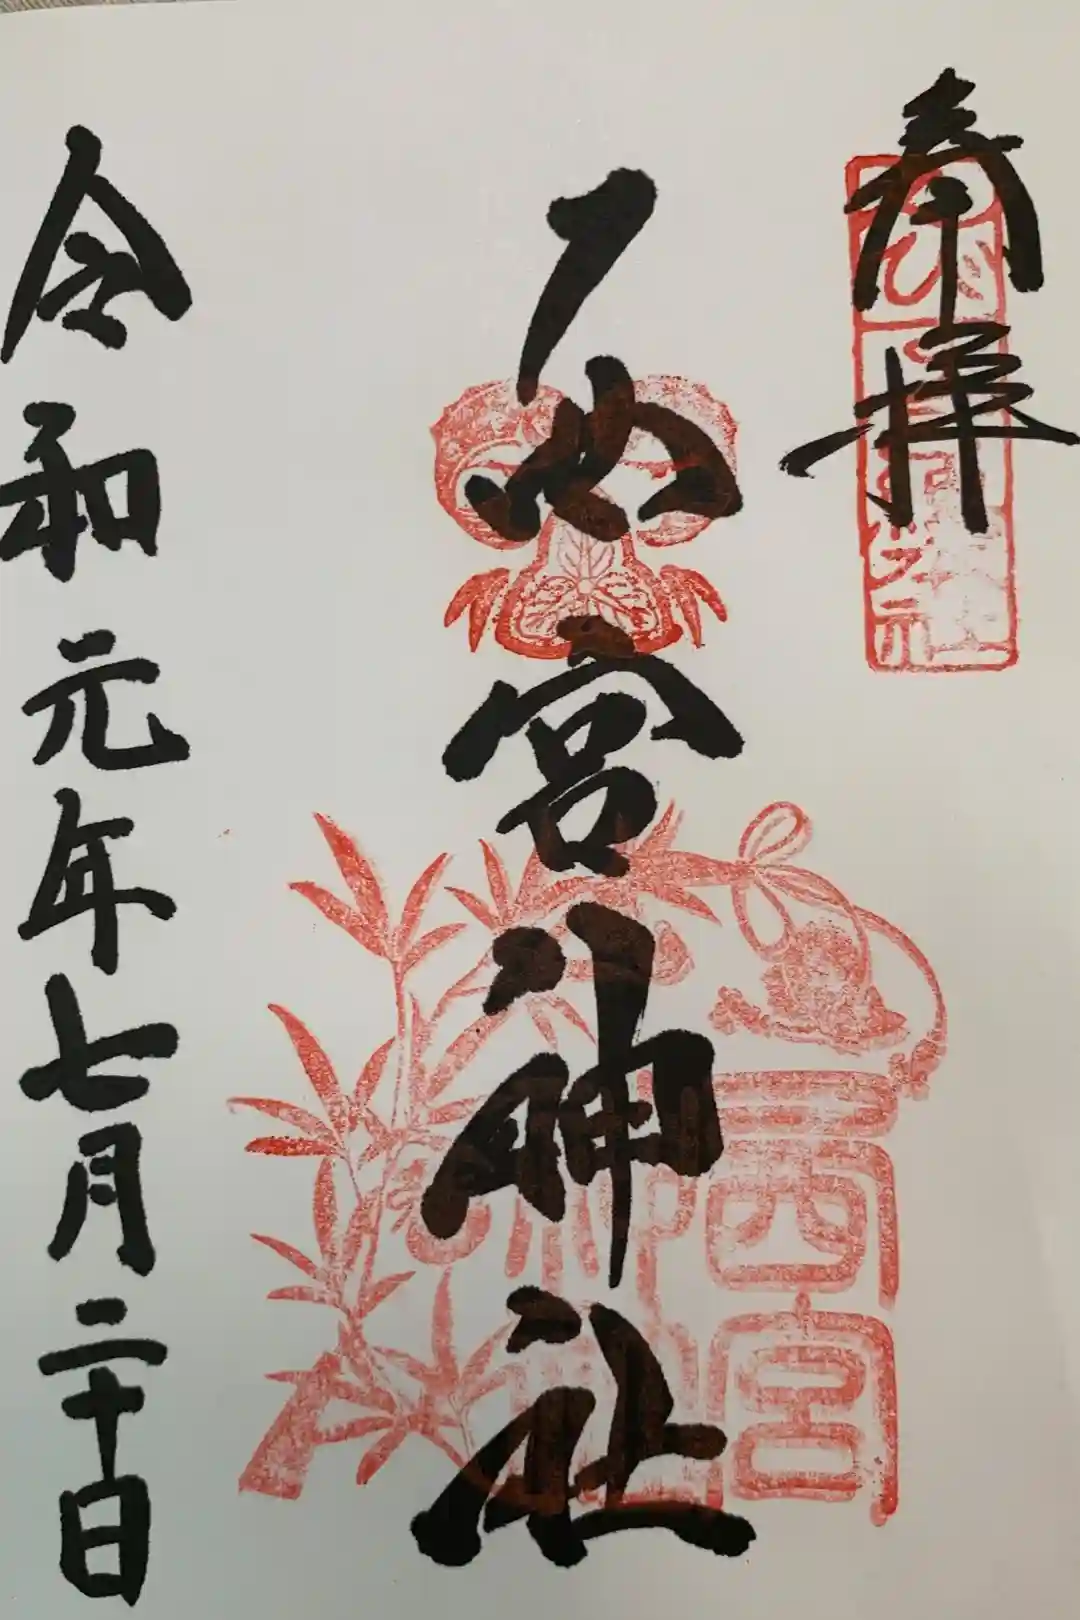 奉拝
西宮神社
令和元年七月二十日
西宮